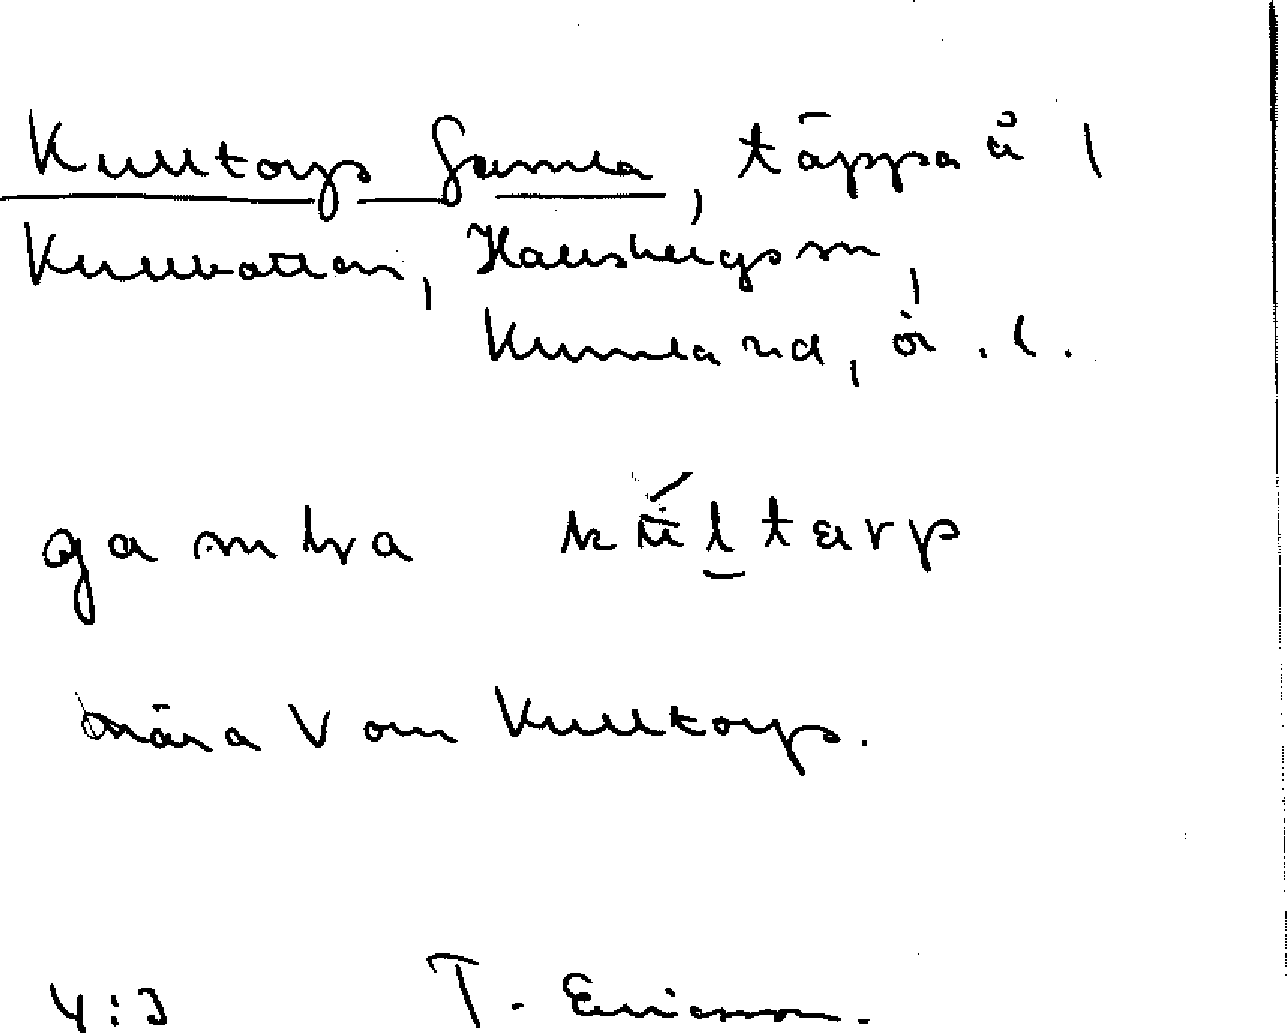 Kulltorps Gamla, täppa å 1
Kumbottlan, Hallsbergs sn,
Kumla hd, Ör. l.
gambra kŭ́ltarp
nära V om Kulltorp.
4:3 T. Ericsson.